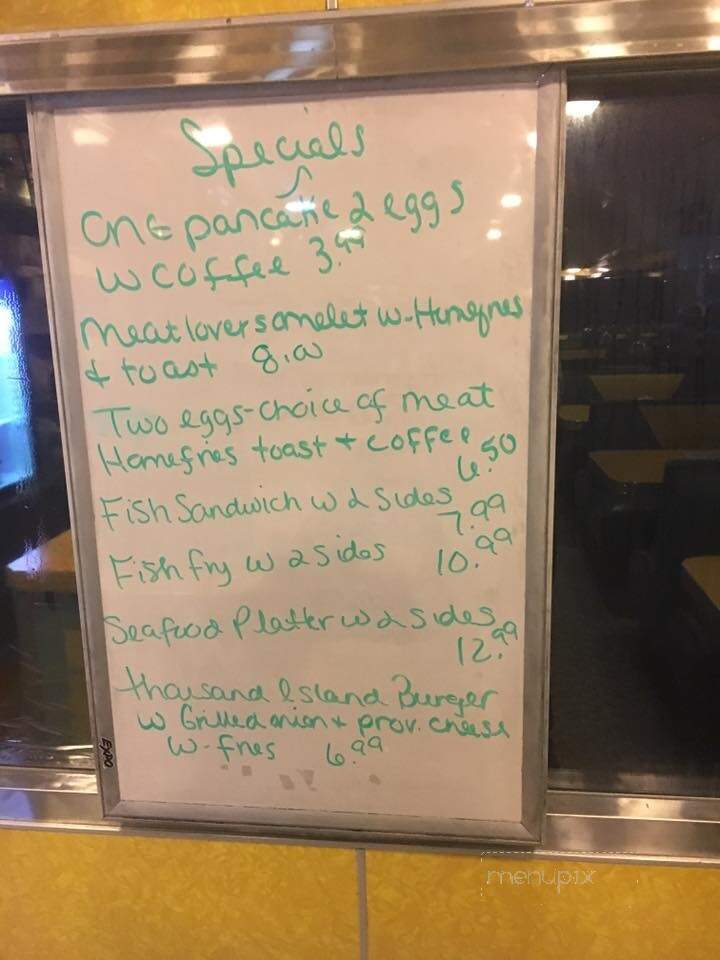 Specials
One pancake 2 eggs
w coffee 3.99
Meat lovers omelet w-Homefries
& toast 8.00
Two eggs-choice of meat
Homefries toast + coffee
6.50
Fish Sandwich w 2 Sides
7.99
Fish fry w 2 sides 10.99
Seafood Platter w 2 sides
12.99
Thousand Island Burger
w Grilled onion + prov. cheese
w-fries 6.99
EXPO
menupix